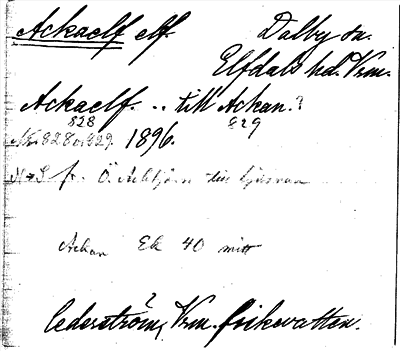 Ackaelf elf.
Dalby sn.
Elfdals hd. Vrm.
Ackaelf. .. till Ackan.?
828 829
N:o 828 o. 829. 1896.
N→S fr. Ö. Acktjärn till Ljusnan
Ackan Ek 40 mitt
Cederström, Vrm. fiskevatten.
?